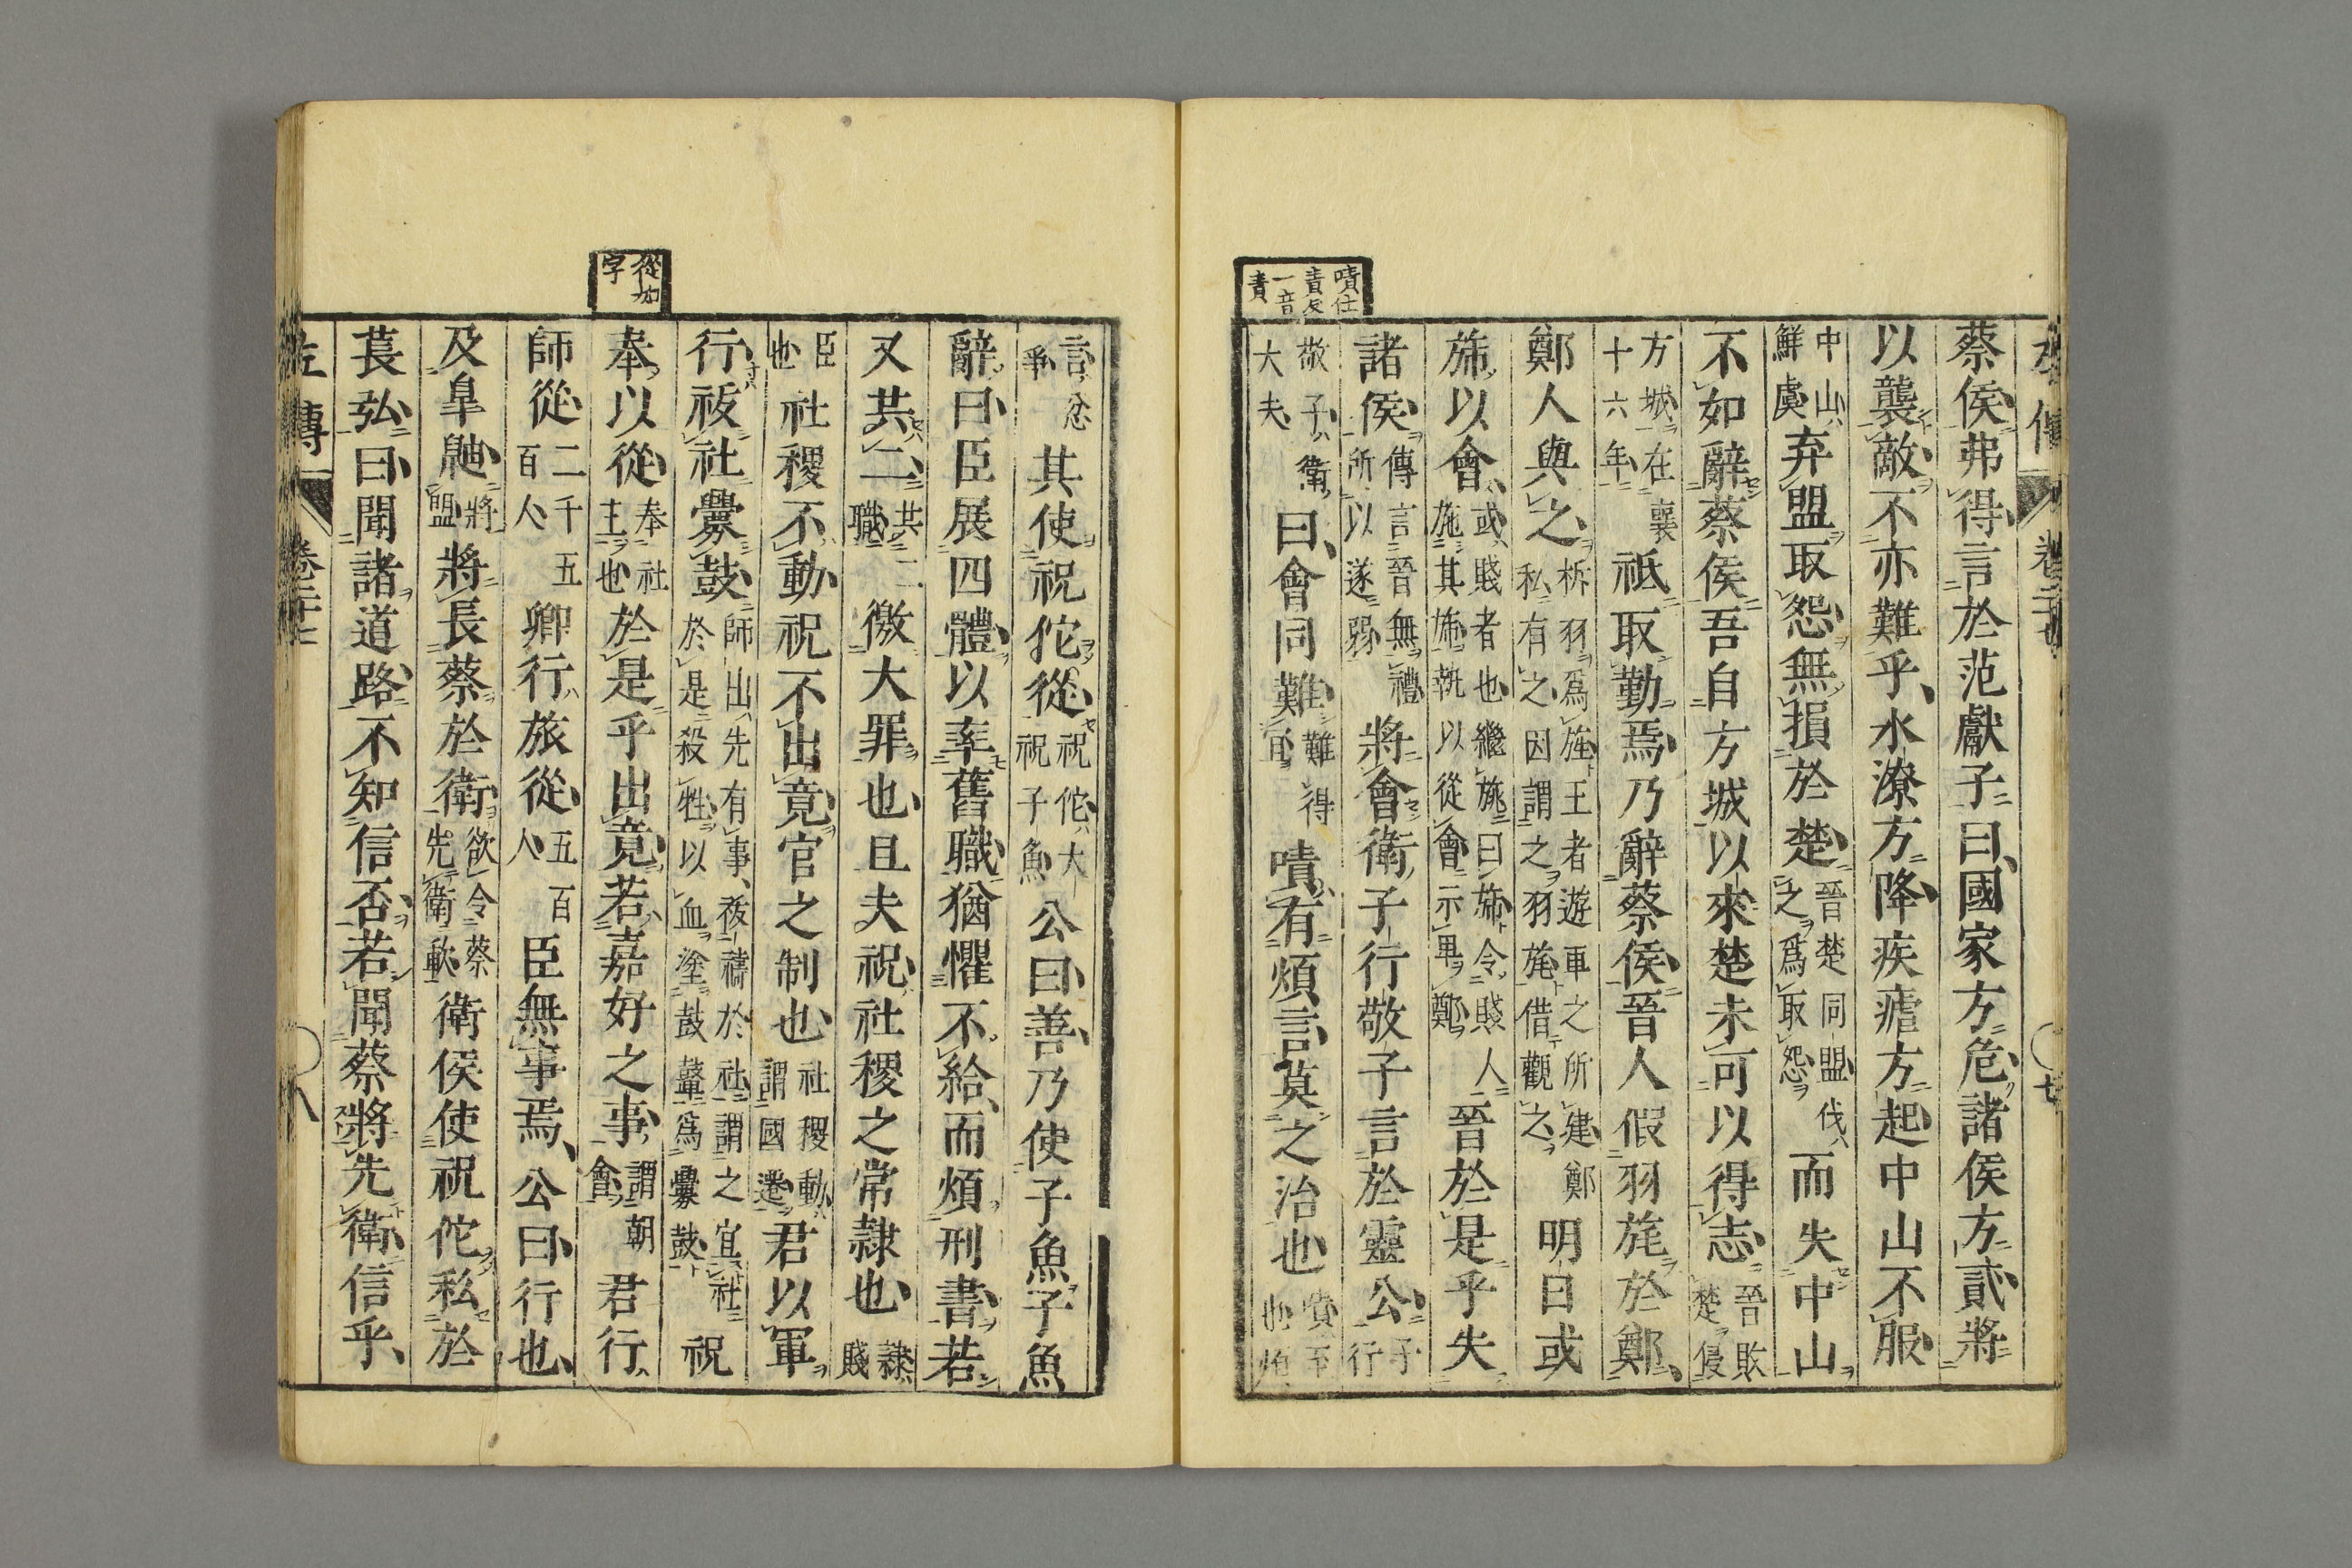 左傳 卷二十七 七
蔡侯弗得言於范獻子曰國家方危諸侯方貳將
以襲敵不亦難乎水潦方降疾瘧方起中山不服
中山鮮虞弃盟取怨無損於楚晉楚同盟伐之爲取怨而失中山
不如辭蔡侯吾自方城以來楚未可以得志晉敗楚侵
方城在襄十六年祗取勤焉乃辭蔡侯晉人假羽旄於鄭
鄭人與之析羽爲旌王者遊車之所建鄭私有之因謂之羽旄借觀之明日或
旆以會或賤者也繼旐曰旆令賤人施其旆執以從會示卑鄭晉於是乎失
諸侯傳言晉無禮所以遂弱將會衛子行敬子言於靈公子行
敬子衛大夫曰會同難難得宜嘖有煩言莫之治也嘖至也煩
嘖仕責反一音責
言忿爭其使祝佗從祝佗大祝子魚公曰善乃使子魚子魚
辭曰臣展四體以率舊職猶懼不給而煩刑書若
又共二共二職徼大罪也且夫祝社稷之常隸也隸賤
臣也社稷不動祝不出竟官之制也社稷動謂國遷君以軍
行祓社釁鼓師出先有事祓禱於社謂之宜社於是殺牲以血塗鼓鼙爲釁鼓祝
奉以從奉社主也於是乎出竟若嘉好之事謂朝會君行
從如字
師從二千五百人卿行旅從五百人臣無事焉公曰行也
及皐鼬將盟將長蔡於衛欲令蔡先衛歃衛侯使祝佗私於
萇弘曰聞諸道路不知信否若聞蔡將先衛信乎
左傳 卷二十七 八